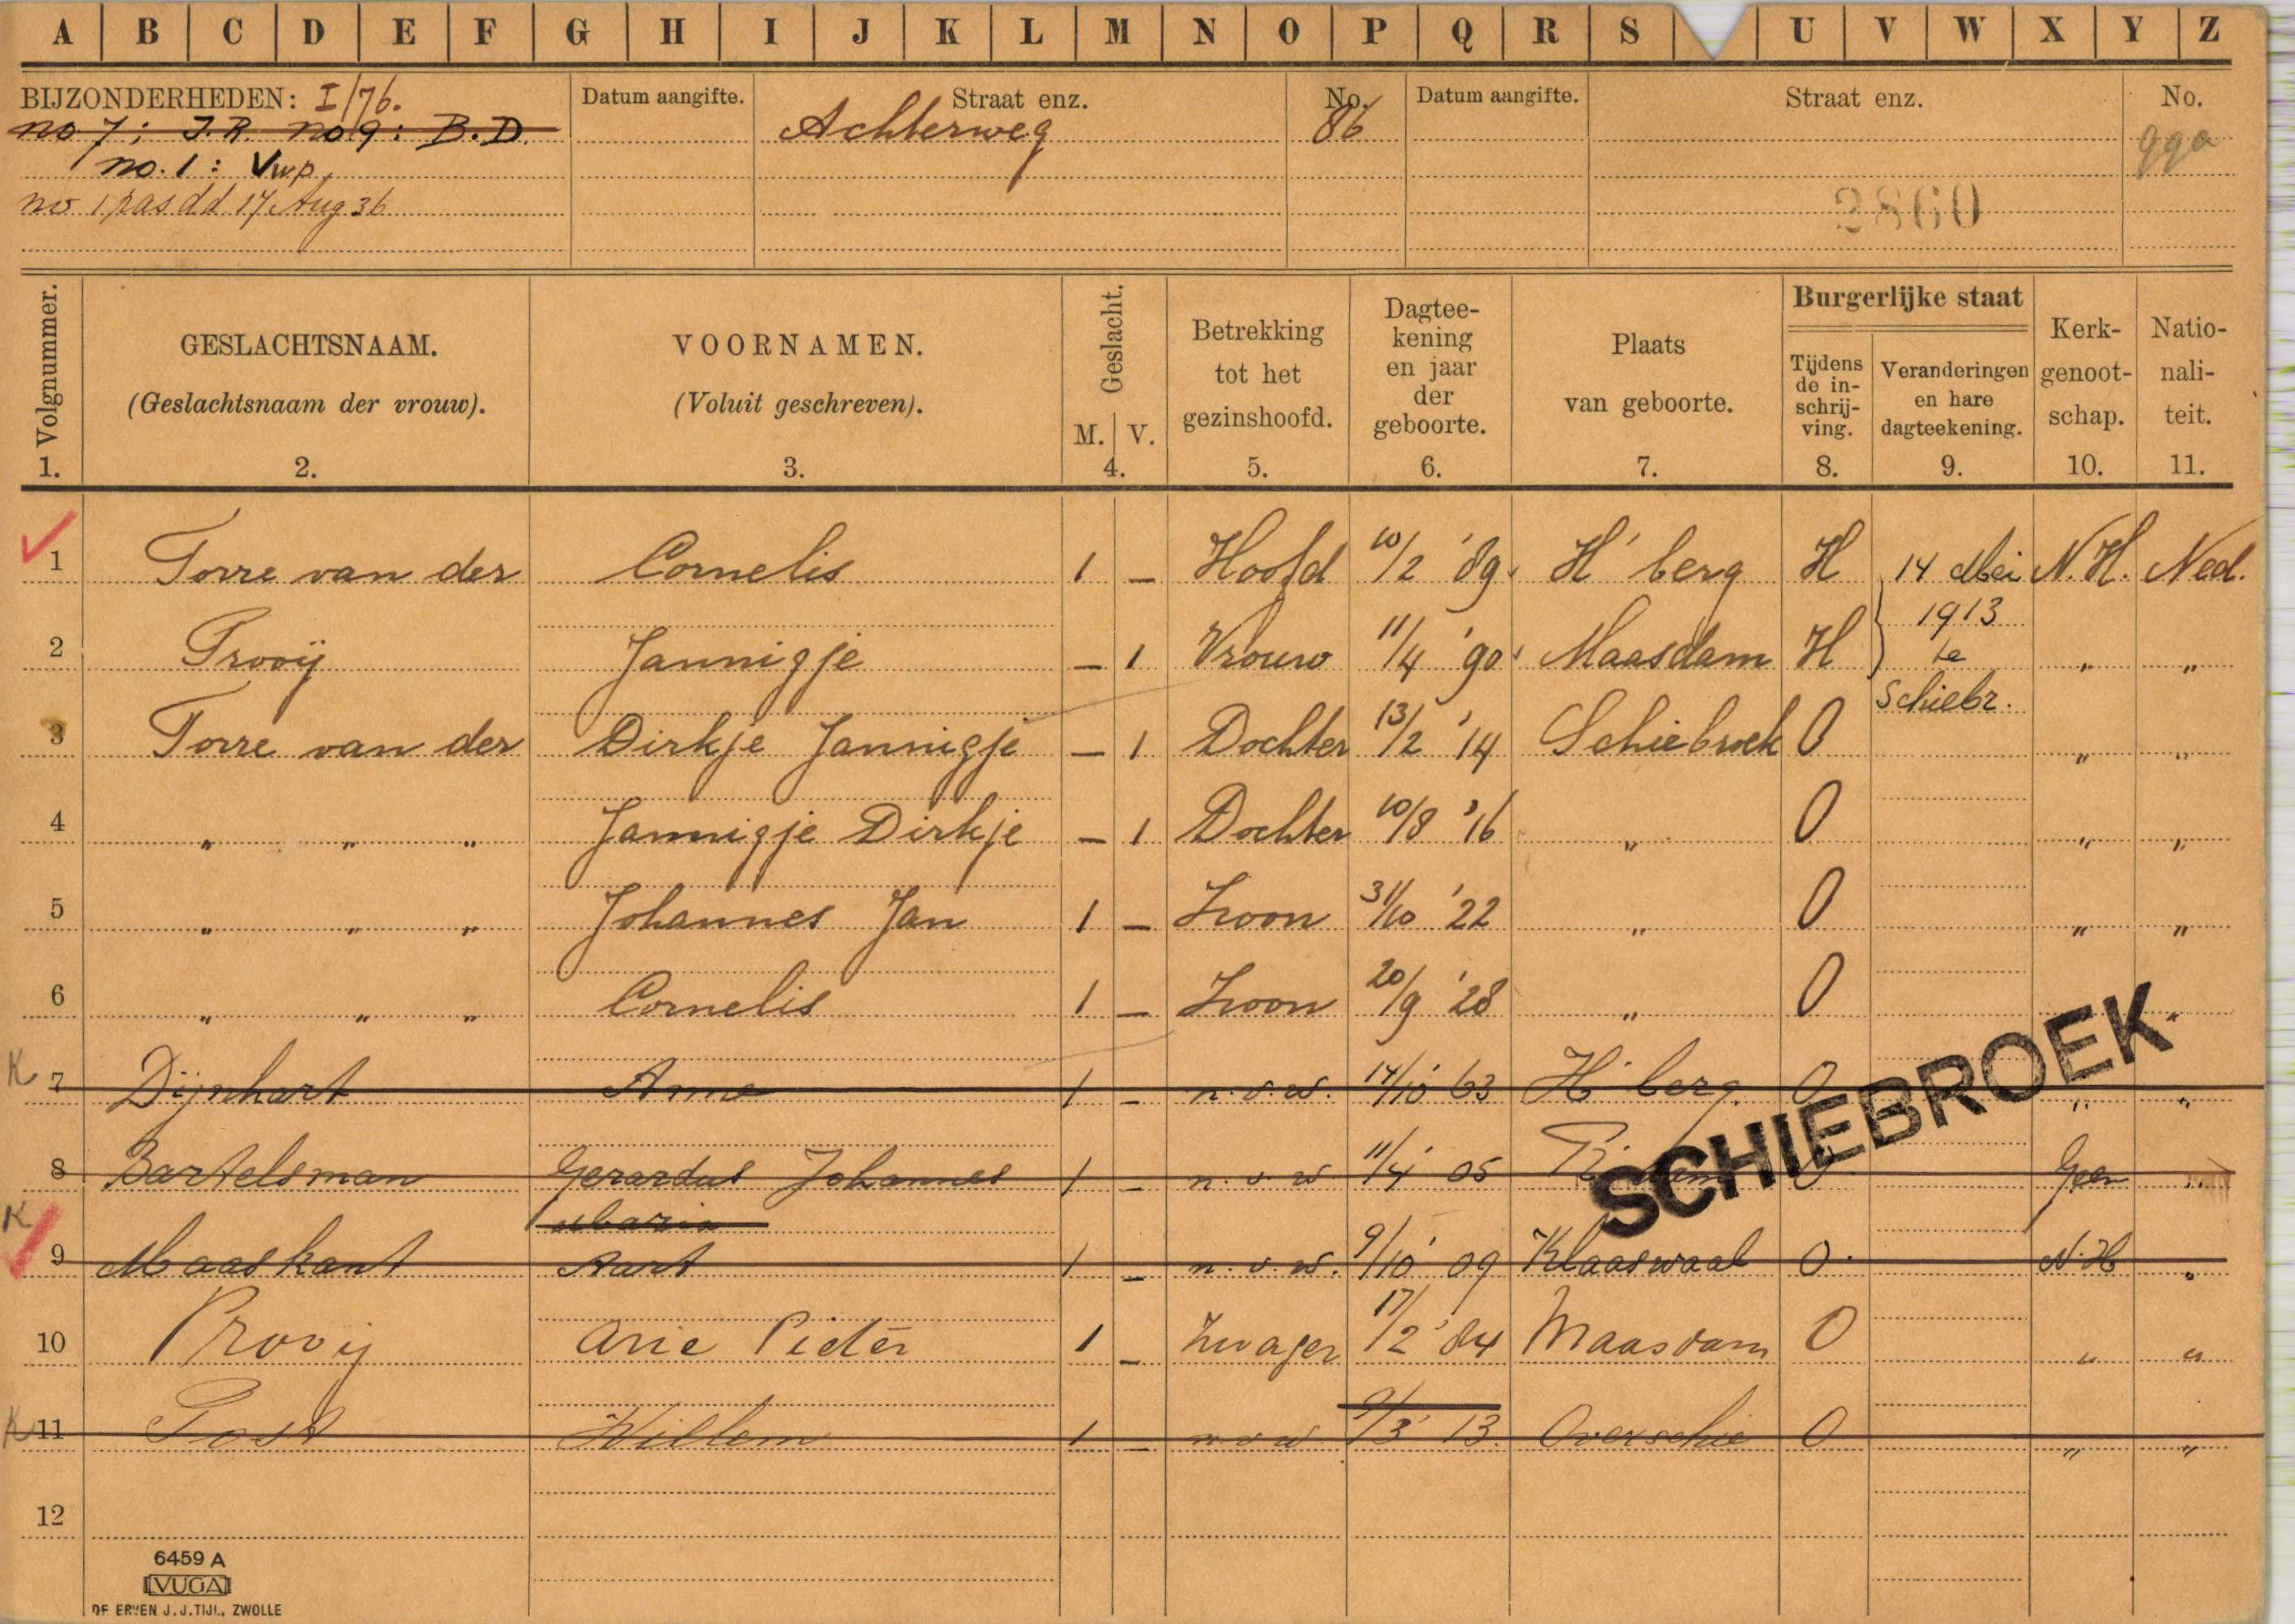 A B C D E F G H I J K L M N O P Q R S U V W X Y Z
BIJZONDERHEDEN: I/76. Datum aangifte. Straat enz. No. Datum aangifte. Straat enz. No.
no 7; J.R. no 9: B.D. Achterweg 86 99a
no. 1: Vwp.
no 1 pas dd 17 Aug 36 2860
Volgnummer. GESLACHTSNAAM. (Geslachtsnaam der vrouw). VOORNAMEN. (Voluit geschreven). Geslacht. M. V. Betrekking tot het gezinshoofd. Dagtee-kening en jaar der geboorte. Plaats van geboorte. Burgerlijke staat Tijdens de in-schrij-ving. Veranderingen en hare dagteekening. Kerk-genoot-schap. Natio-nali-teit.
1. 2. 3. 4. 5. 6. 7. 8. 9. 10. 11.
1 Torre van der Cornelis 1 – Hoofd 10/2 '89 H'berg H 14 Mei N.H. Ned.
1913
2 Prooÿ Jannigje – 1 Vrouw 11/4 '90 Maasdam H te " "
Schiebr.
3 Torre van der Dirkje Jannigje – 1 Dochter 13/2 '14 Schiebroek O " "
4 " " " Jannigje Dirkje – 1 Dochter 10/8 '16 " O " "
5 " " " Johannes Jan 1 – Zoon 31/10 '22 " O " "
6 " " " Cornelis 1 – Zoon 20/9 '28 " O "
SCHIEBROEK
K 7 Dijnhart 1 – n.v.w. 17/10 '63 H'berg. O " "
8 Bartelsman Gerardus Johannes 1 – n.v.w 11/4 '05 Geen "
Maria
K 9 Maaskant Aart 1 – n.v.w. 9/10 '09 Klaaswaal O N.H "
10 Prooij Arie Pieter 1 – Zwager 17/2 '84 Maasdam O " "
K 11 Post Willem 1 – n v w 9/3 '13. Overschie O " "
12
6459 A
VUGA
DE ERVEN J.J.TIJL, ZWOLLE